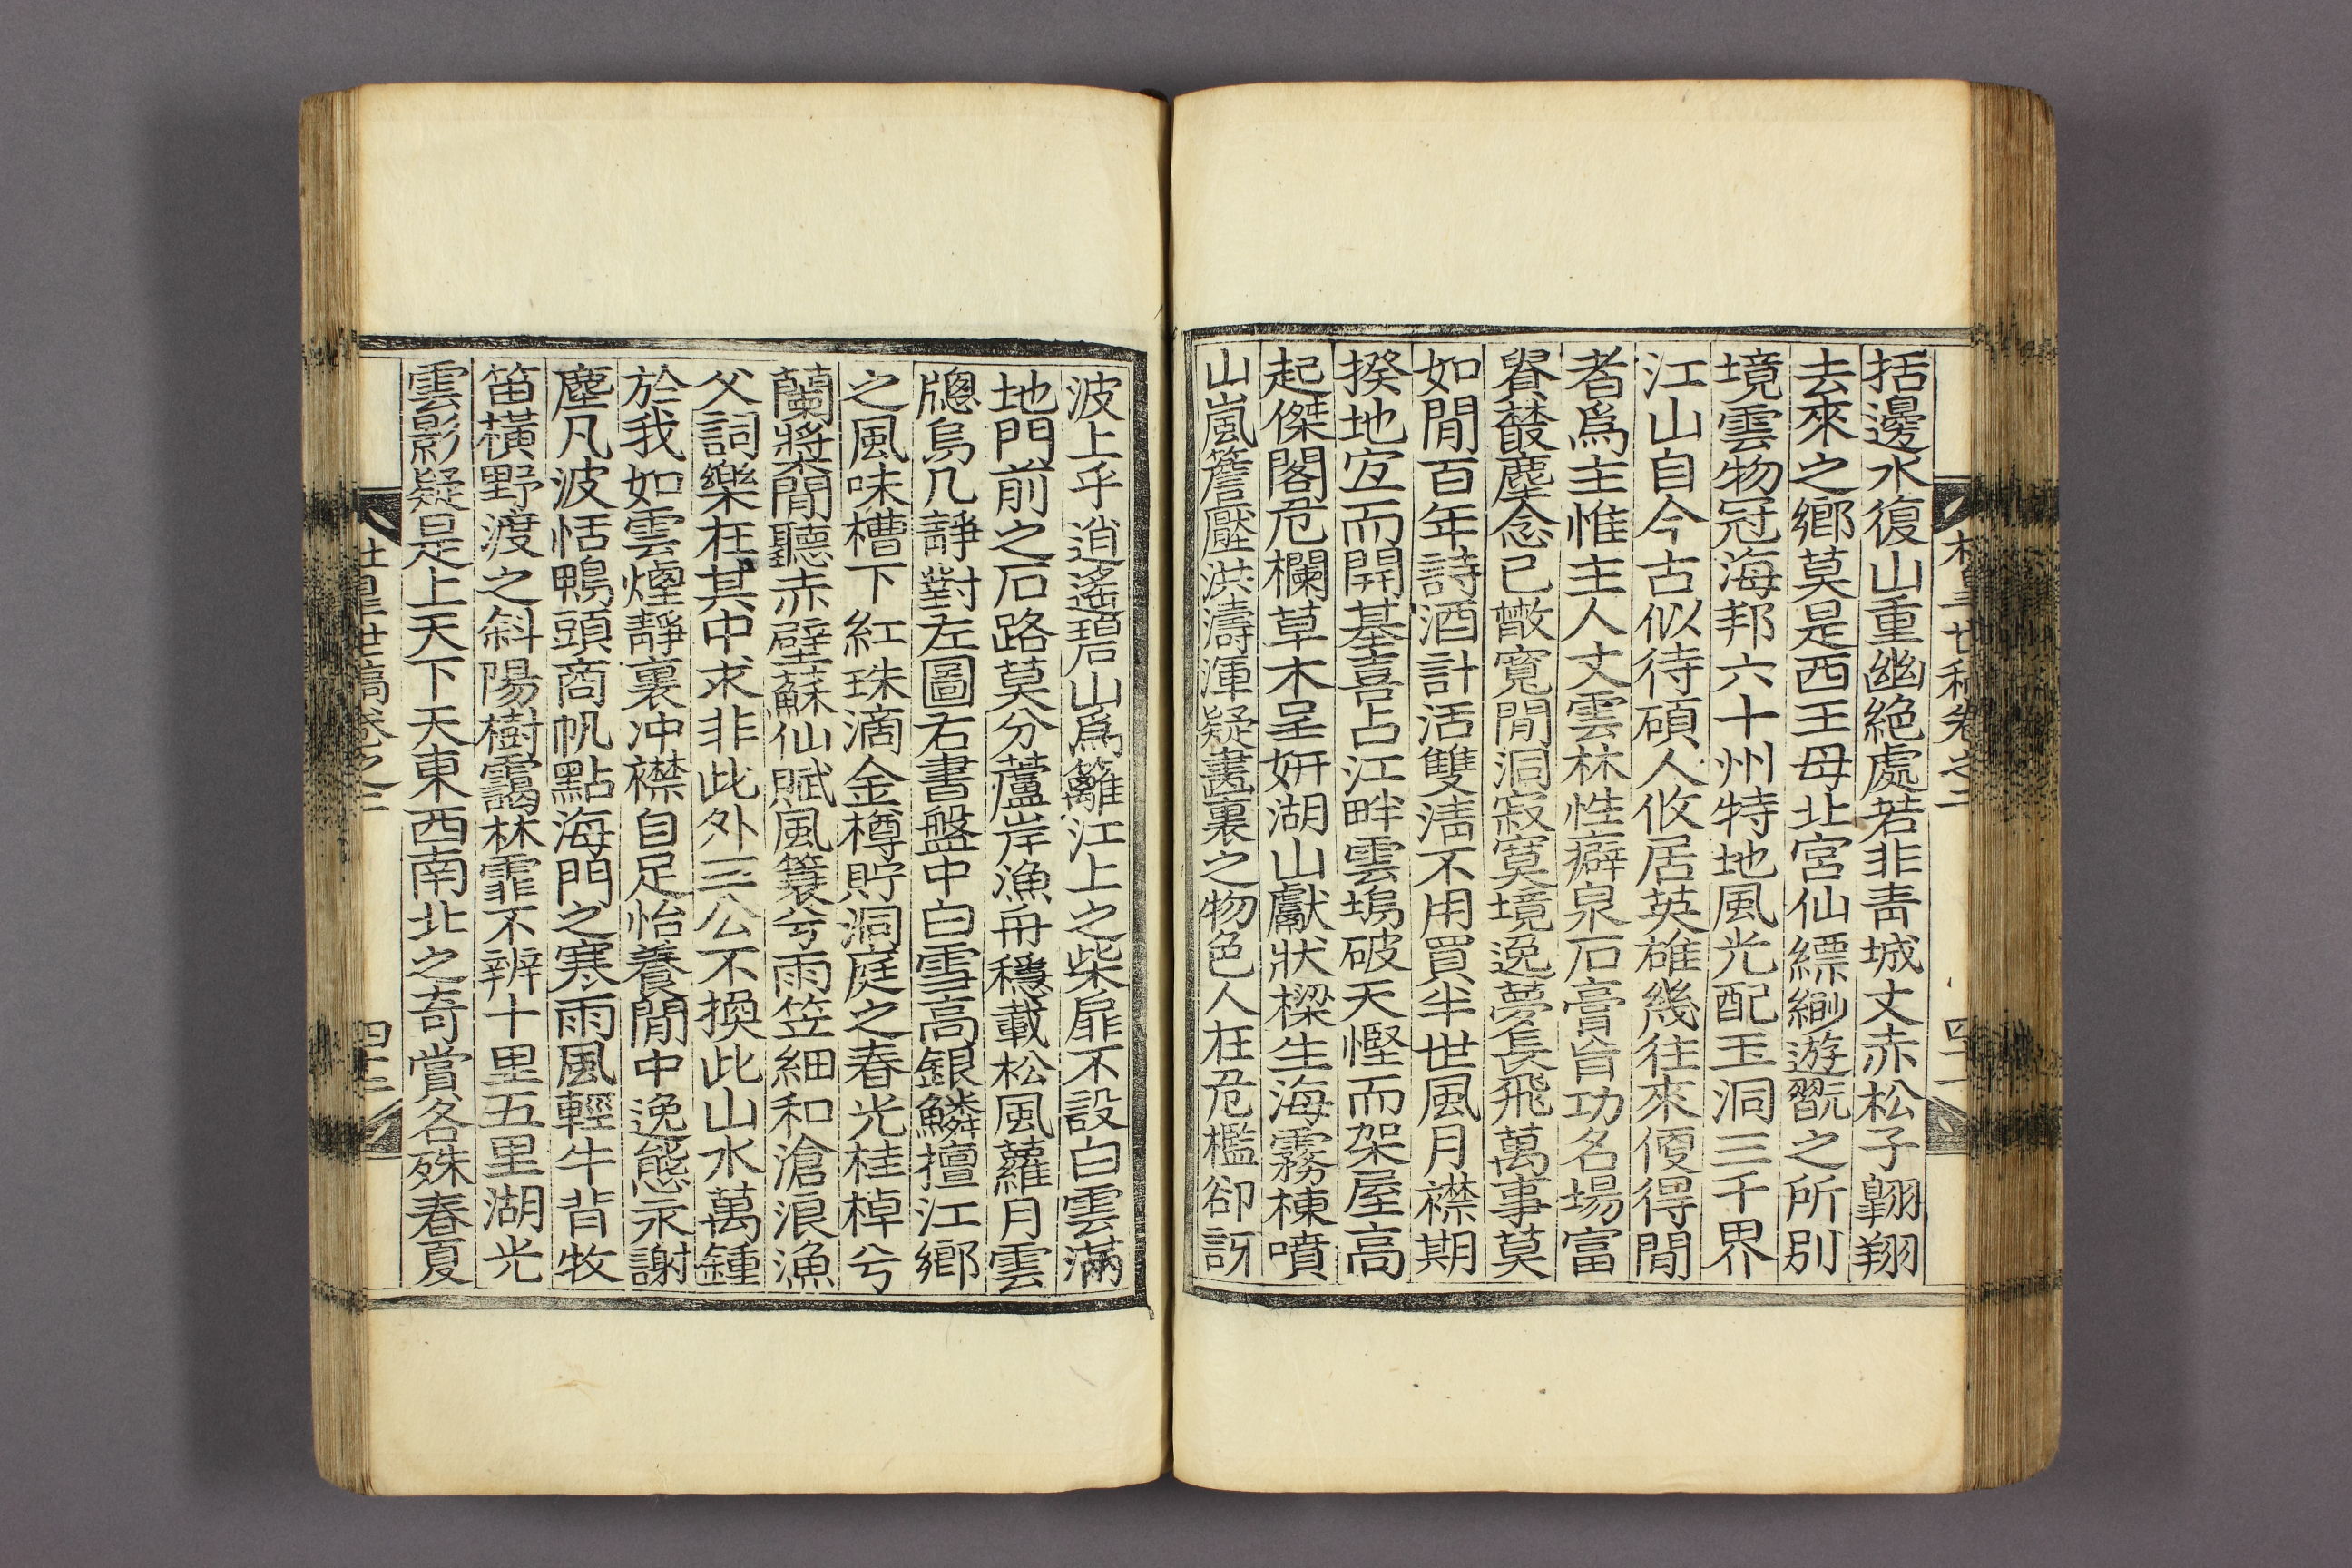 括邊水復山重幽絶處若非靑城丈赤松子翶翔
去來之鄕莫是西王母北宮仙縹緲遊翫之所別
境雲物冠海邦六十州特地風光配玉洞三千界
江山自今古似待碩人攸居英雄幾往來偃得閒
者爲主惟主人丈雲林性癖泉石膏盲功名場富
貴藂塵念已憿寬閒洞寂寞境逸夢長飛萬事莫
如閒百年詩酒計活雙淸不用買半世風月襟期
揆地宜而開基喜占江畔雲塢破天慳而架屋高
起傑閣危欄草木呈姸湖山獻狀樑生海霧棟噴
山嵐簷壓洪濤渾疑畫裏之物色人在危檻卻訝
波上乎逍遙碧山爲籬江上之柴扉不設白雲滿
地門前之石路莫分蘆岸漁舟穩載松風蘿月雲
牕烏几靜對左圖右書盤中白雪高銀鱗擅江鄕
之風味槽下紅珠滴金樽貯洞庭之春光桂棹兮
蘭槳閒聽赤壁蘇仙賦風簑兮雨笠細和滄浪漁
父詞樂在其中求非此外三公不換此山水萬鍾
於我如雲煙靜裏冲襟自足怡養閒中逸態永謝
塵凡波恬鴨頭商帆點海門之寒雨風輕牛背牧
笛橫野渡之斜陽樹靄林霏不辨十里五里湖光
雲影疑是上天下天東西南北之奇賞各殊春夏
皇世稿卷之二
四十三